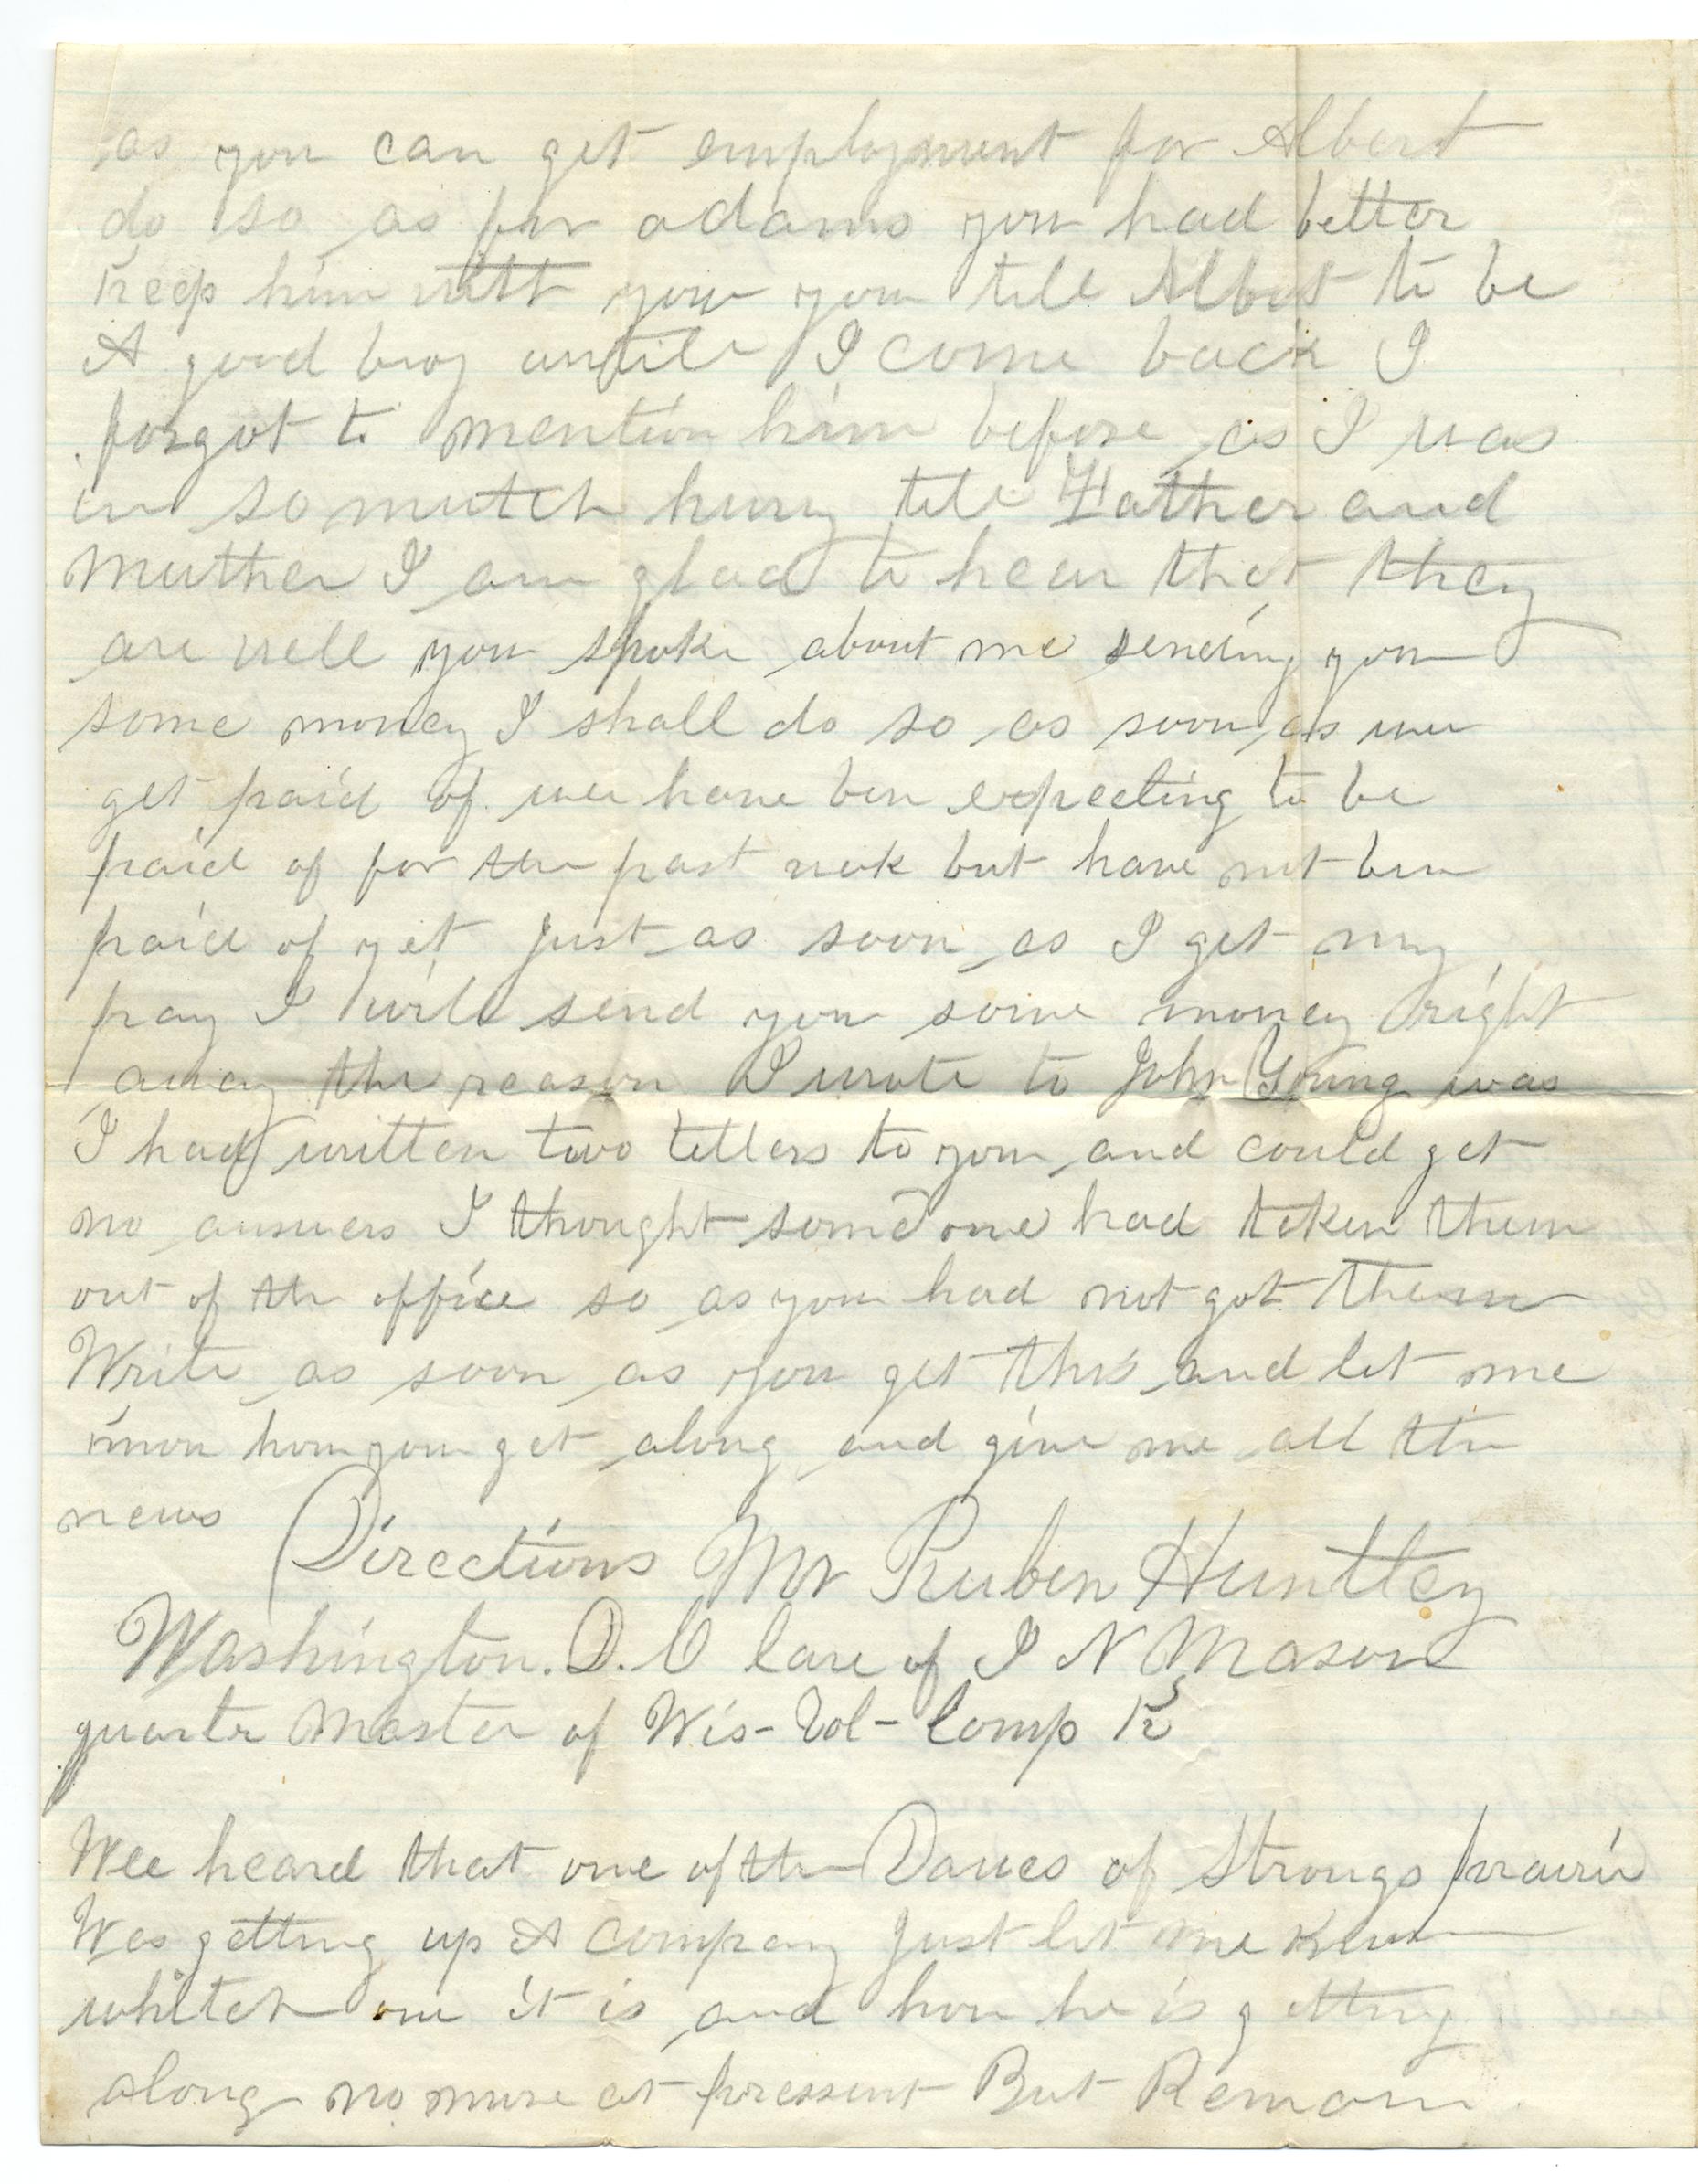 as you can get employment for Albert
do so as for adams you had better
keep him witt you you tell Albert to be
A good boy untill I come back I
forgot to mention him before as I was
in so mutch hurry tell Father and
Muther I am glad to hear that they
are well you spoke about me sending you
some money I shall do so as soon as wee
get paid of wee have ben expecting to be
paid of for the past week but have not ben
paid of yet Just as soon as I get my
pay I will send you some money right
away the reason I wrote to John Young was
I had written two letters to you and could get
no answers I thought some one had taken them
out of the office so as you had not got them
Write as soon as you get this and let me
know how you get along and give me all the
news Directions Mr Ruben Huntley
Washington. D. C Care of I N Mason
quartr Master of Wis- Vol- Comp K
Wee heard that one of the Dawes of Strongs prairie
Was getting up A company Just let me know
whitch one it is and how he is getting
along no more at pressent But Remain